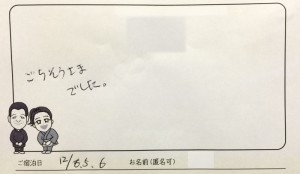 ごちそうさま
でした。
ご宿泊日 12/5.5.6 お名前(匿名可)